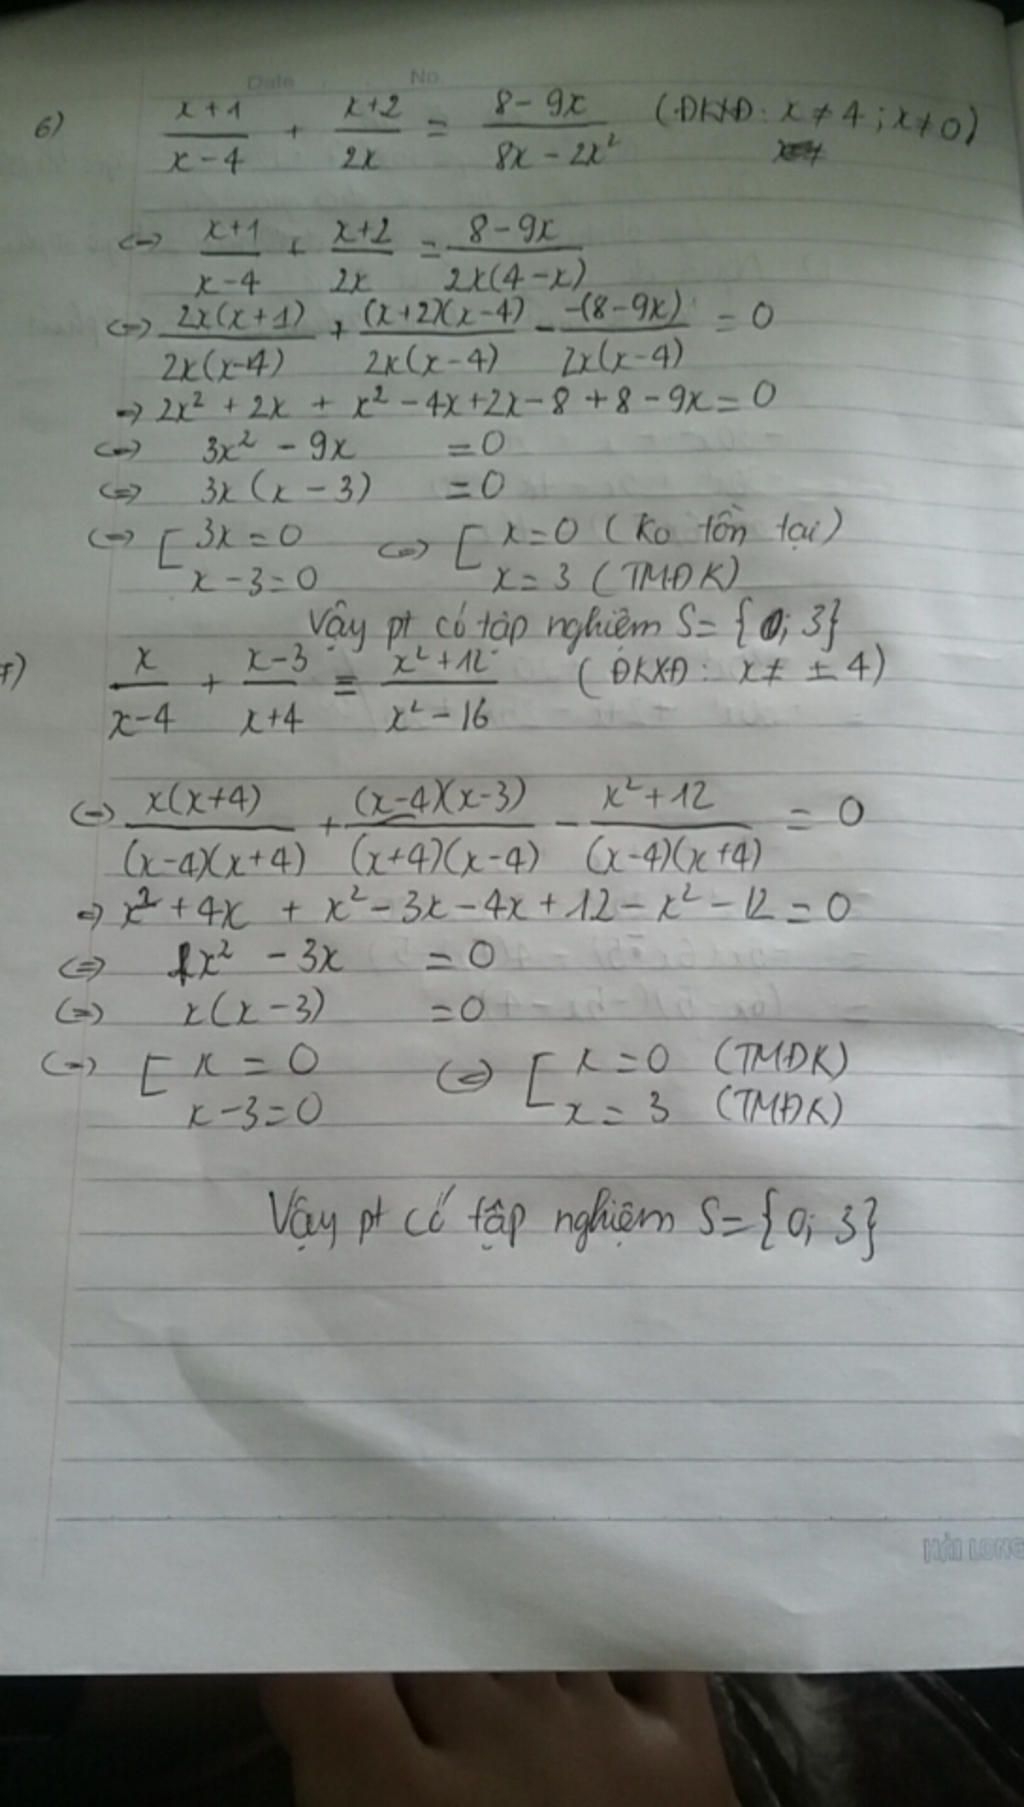 Date No.
6) x+1/x-4 + x+2/2x = 8-9x/8x-2x² (ĐKXĐ: x ≠ 4; x ≠ 0)
<=> x+1/x-4 + x+2/2x = 8-9x/2x(4-x)
<=> 2x(x+1)/2x(x-4) + (x+2)(x-4)/2x(x-4) - -(8-9x)/2x(x-4) = 0
=> 2x² + 2x + x² - 4x + 2x - 8 + 8 - 9x = 0
<=> 3x² - 9x = 0
<=> 3x(x-3) = 0
<=> [ 3x = 0 <=> [ x = 0 (Ko tồn tại)
x - 3 = 0 x = 3 (TMĐK)
Vậy pt có tập nghiệm S = {0; 3}
7) x/x-4 + x-3/x+4 = x²+12/x²-16 (ĐKXĐ: x ≠ ± 4)
<=> x(x+4)/(x-4)(x+4) + (x-4)(x-3)/(x+4)(x-4) - x²+12/(x-4)(x+4) = 0
=> x² + 4x + x² - 3x - 4x + 12 - x² - 12 = 0
<=> x² - 3x = 0
<=> x(x-3) = 0
<=> [ x = 0 <=> [ x = 0 (TMĐK)
x - 3 = 0 x = 3 (TMĐK)
Vậy pt có tập nghiệm S = {0; 3}
HẢI LONG